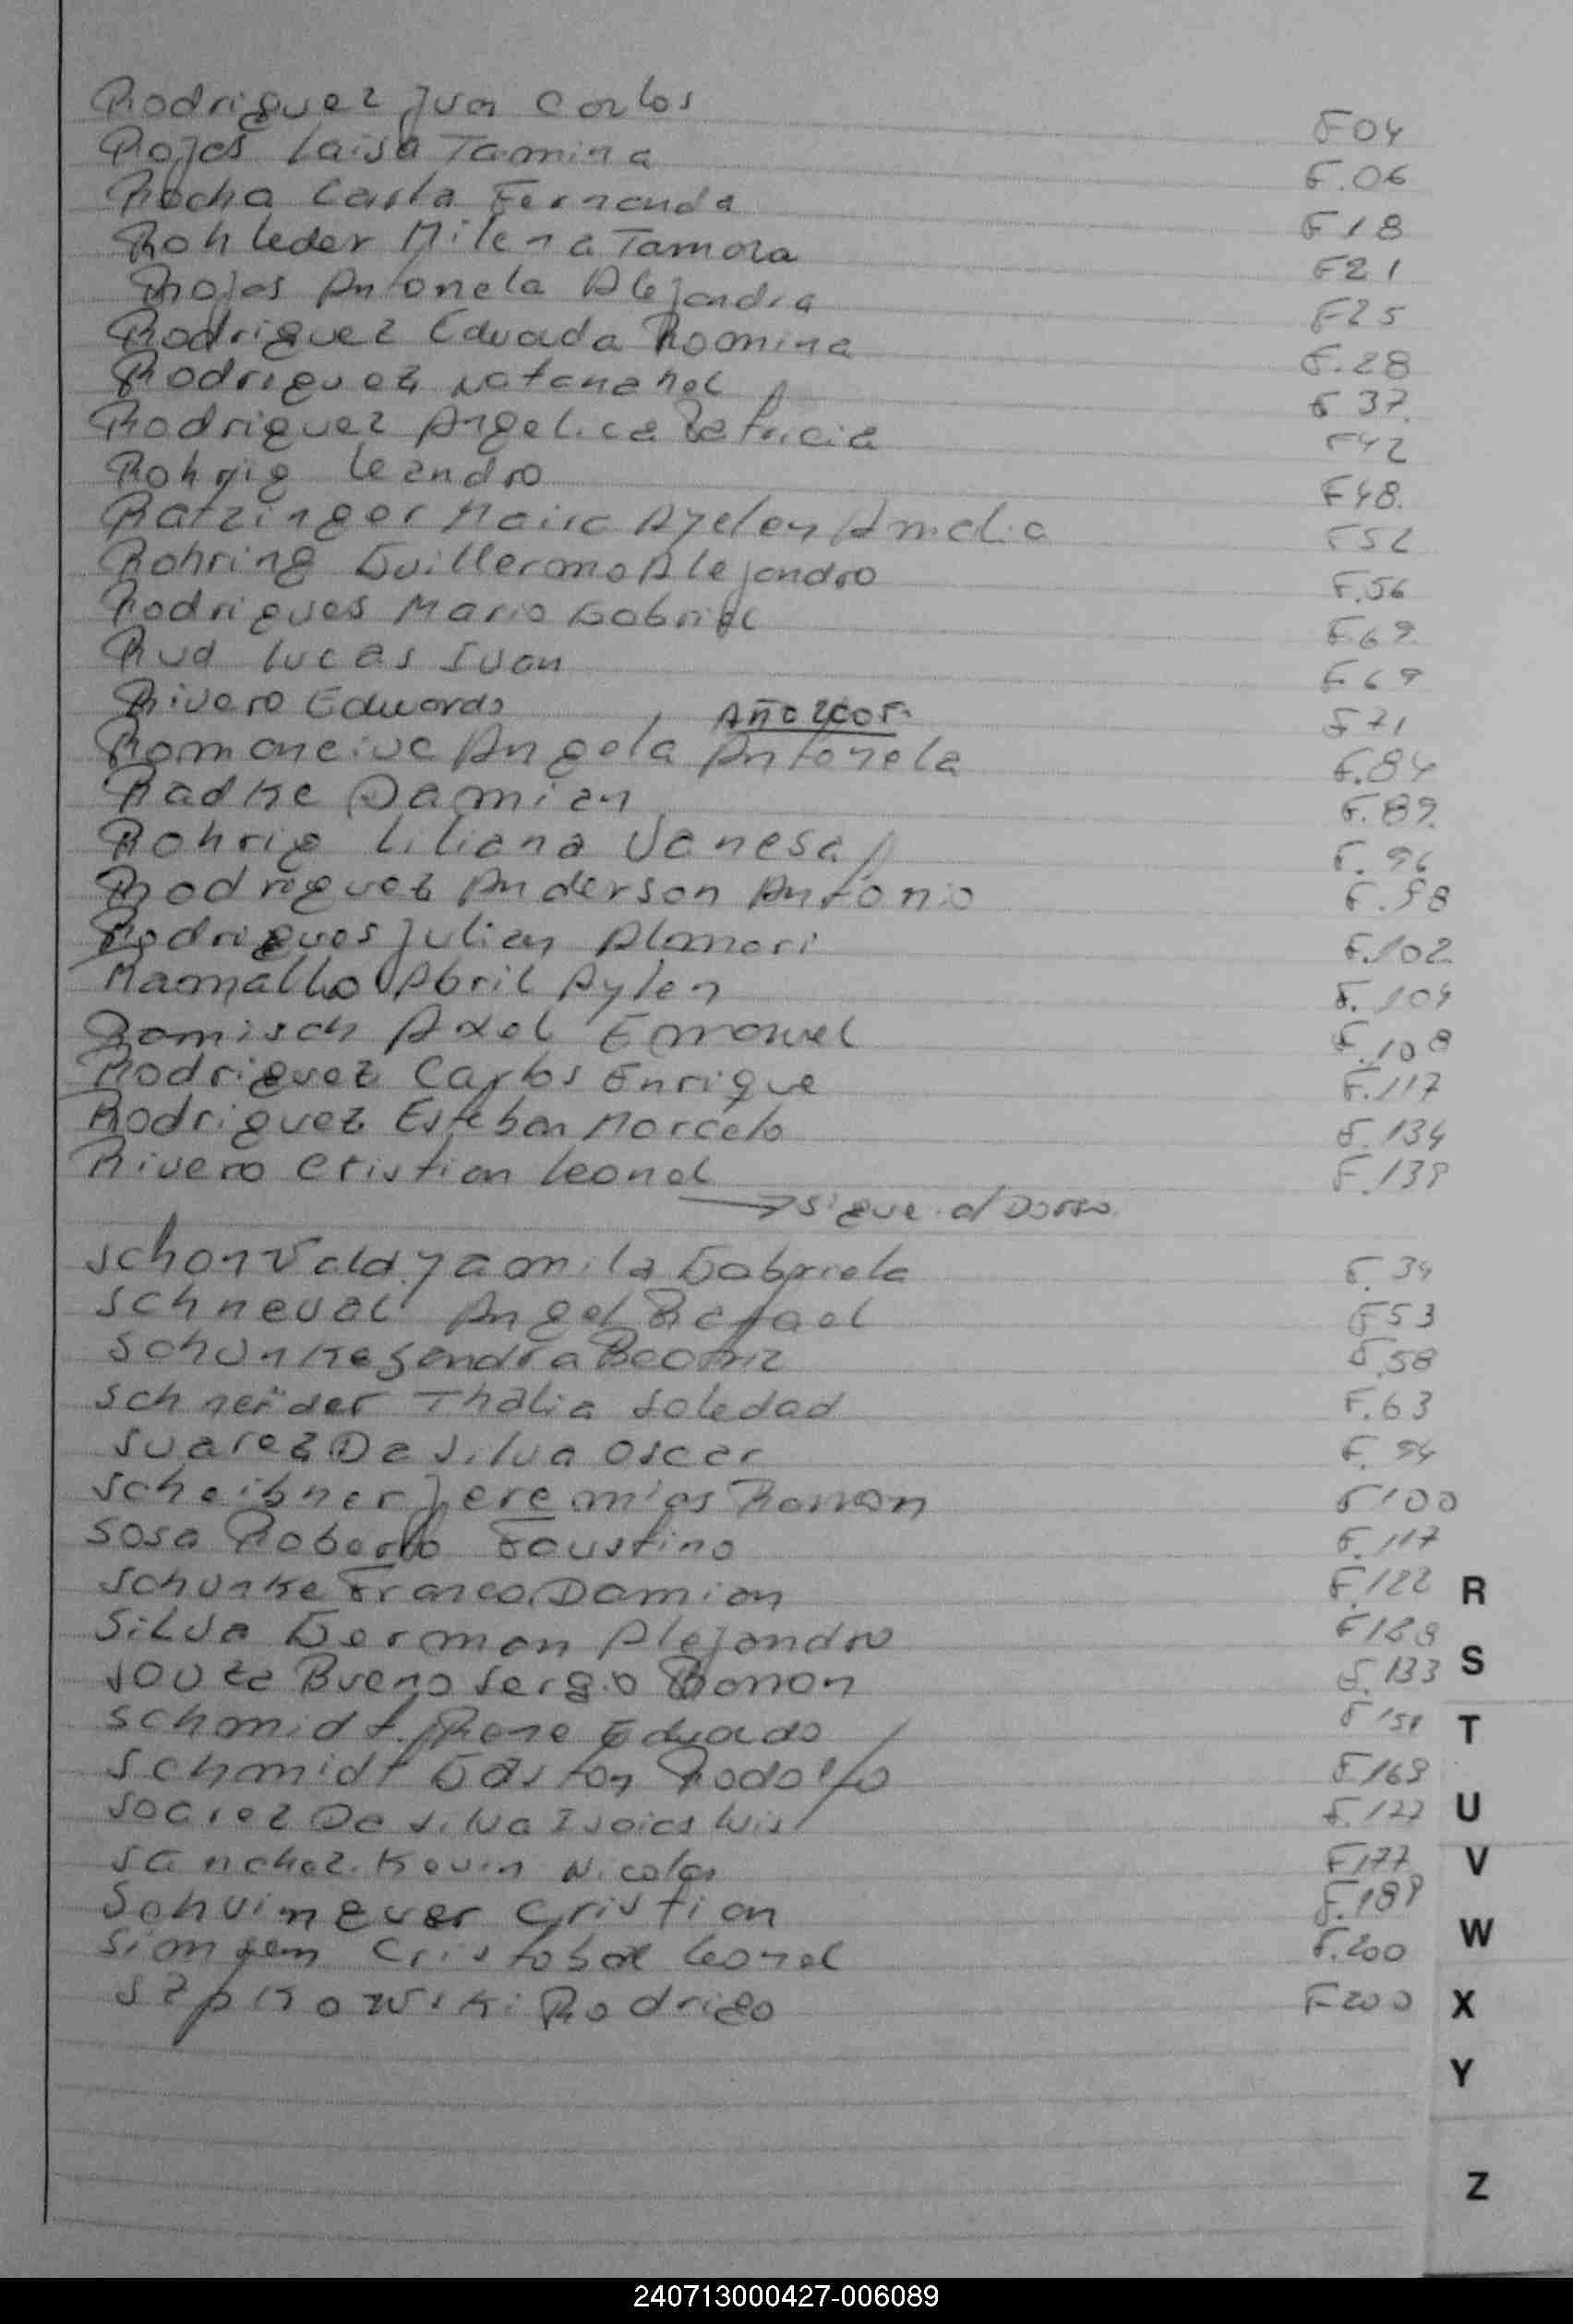 Rodriguez Juan Carlos F04
Rojas Laisa Tamina F.06
Rocha Carla Fernanda F18
Rohleder Milena Tamara F21
Rojas Antonela Alejandra F25
Rodriguez Eduarda Romina F.28
Rodriguez Natanahel F 37.
Rodriguez Angelica Patricia F42
Rohrig Leandro F48.
Ratzinger Maira Ayelen Amelia F52
Rohring Guillermo Alejandro F.56
Rodrigues Mario Gabriel F69.
Rud Lucas Ivan F69
Rivero Eduardo F71
AÑO 2005.
Romaneiuc Angela Antonela F.84
Radke Damian F.89.
Rohrig Liliana Vanesa F.96
Rodriguez Anderson Antonio F.98
Rodrigues Julian Almari F.102
Ramalho Abril Aylen F.104
Ramisch Axel Emanuel F.108
Rodriguez Carlos Enrique F.117
Rodriguez Esteban Marcelo F.134
Rivero Cristian Leonel F.139
→ Sigue al Dorso.
Schonvald Yamila Gabriela F.34
Schneval Angel Rafael F53
Schunke Sandra Beatriz F.58
Schneider Thalia Soledad F.63
Suarez Da Silva Oscar F.94
Scheibner Jeremias Ramon F100
Sosa Roberto Faustino F.117
Schunke Franco Damian F.122
Silva German Alejandro F128
Souza Bueno Sergio Ramon F.133
Schmidt Rene Eduardo F151
Schmidt Gaston Rodolfo F169
Soarez Da Silva Isaias Luis F.177
Sanchez Kevin Nicolas F177
Schuimguer Cristian F.189
Cristobal Leonel F.200
Szpkowski Rodrigo F200
R
S
T
U
V
W
X
Y
Z
240713000427-006089